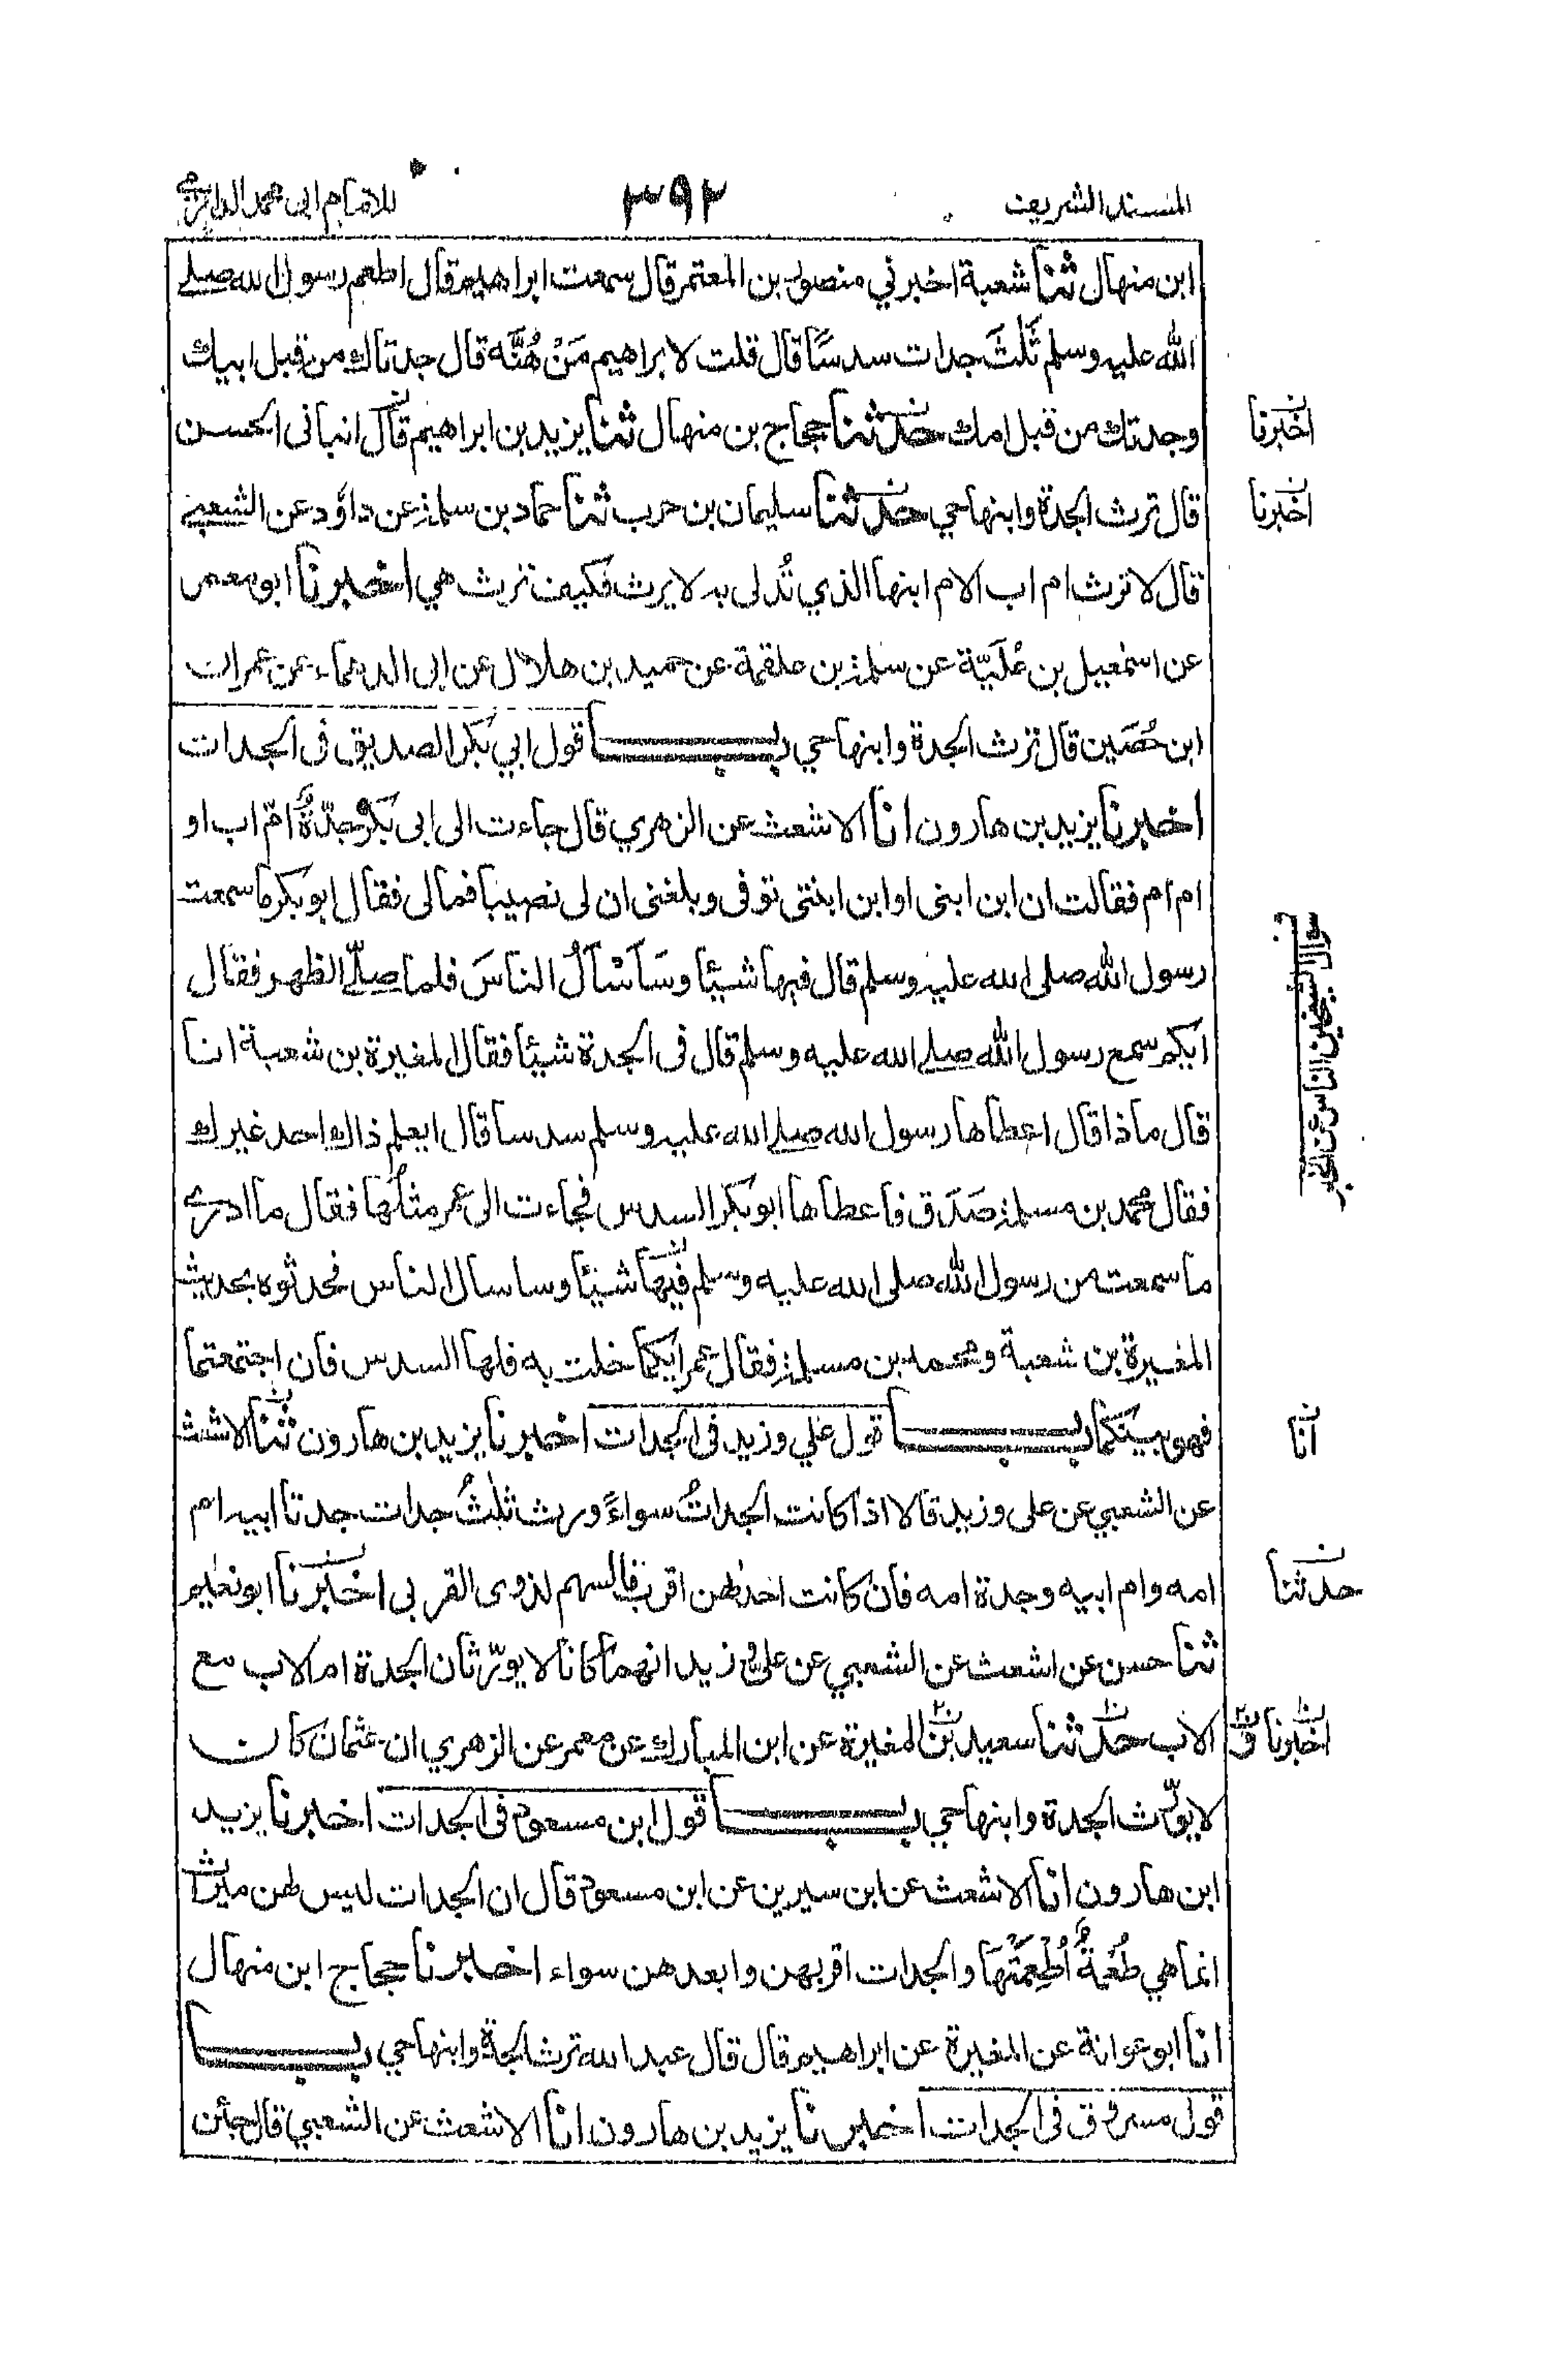 المسند الشريف
٣٩٢
للامام ابى محمد الدارمي
ابن منهال ثنا شعبة اخبرني منصور بن المعتمر قال سمعت ابراهيم قال اطعم رسول الله صلى
الله عليه وسلم ثَلٰثَ جدات سدسًا قال قلت لابراهيم مَنْ هُنَّه قال جدتاك من قبل ابيك
وجدتك من قبل امك حدثنا حجاج بن منهال ثنا يزيد بن ابراهيم قال انبانى الحسن
اخبرنا
قال ترث الجدة وابنها حي حدثنا سليمان بن حرب ثنا حماد بن سلمة عن داؤد عن الشعبي
اخبرنا
قال لا ترث ام اب الام ابنها الذي تُدلى به لا يرث فكيف ترث هي اخبرنا ابو معمر
عن اسمٰعيل بن عُلَيّة عن سلمة بن علقمة عن حميد بن هلال عن ابى الدهماء عن عمران
ابن حُصَين قال ترث الجدة وابنها حي باب قول ابي بكر الصديق فى الجدات
اخبرنا يزيد بن هارون انا الاشعث عن الزهري قال جاءت الى ابى بكر جدّةٌ امّ اب او
ام ام فقالت ان ابن ابنى او ابن ابنتى توفى وبلغنى ان لى نصيبا فمالى فقال ابو بكر ما سمعت
رسول الله صلى الله عليه وسلم قال فيها شيئا وسَاَسْاَلُ الناسَ فلما صلّى الظهر فقال
ايكم سمع رسول الله صلى الله عليه وسلم قال فى الجدة شيئا فقال المغيرة بن شعبة انا
قال ماذا قال اعطاها رسول الله صلى الله عليه وسلم سدسا قال ايعلم ذاك احد غيرك
فقال محمد بن مسلمة صَدَق فاعطاها ابو بكر السدس فجاءت الى عمر مثلُها فقال ما ادرى
ما سمعت من رسول الله صلى الله عليه وسلم فيها شيئا وساسال الناس فحدثوه بحديث
المغيرة بن شعبة ومحمد بن مسلمة فقال عمر ايكما خلت به فلها السدس فان اجتمعتما
فهو بينكما باب قول علي وزيد فى الجدات اخبرنا يزيد بن هارون ثنا الاشعث
انا
عن الشعبي عن على وزيد قالا اذا كانت الجداتُ سواءً ورث ثلٰثُ جدات جدتا ابيه ام
امه وام ابيه وجدة امه فان كانت احداهن اقرب فالسهم لذوى القربى اخبرنا ابو نعيم
حدثنا
ثنا حسن عن اشعث عن الشعبي عن على و زيد انهما كانا لا يورّثان الجدة ام الاب مع
الاب حدثنا سعيد بن المغيرة عن ابن المبارك عن معمر عن الزهري ان عثمان كان
اخبرنا
لا يورّث الجدة وابنها حي باب قول ابن مسعود فى الجدات اخبرنا يزيد
ابن هارون انا الاشعث عن ابن سيرين عن ابن مسعود قال ان الجدات ليس لهن ميراث
انما هي طُعْمَةٌ اُطْعِمْنَهَا والجدات اقربهن وابعدهن سواء اخبرنا حجاج ابن منهال
انا ابو عوانة عن المغيرة عن ابراهيم قال قال عبد الله ترث الجدة وابنها حي باب
قول مسروق فى الجدات اخبرنا يزيد بن هارون انا الاشعث عن الشعبي قال جئن